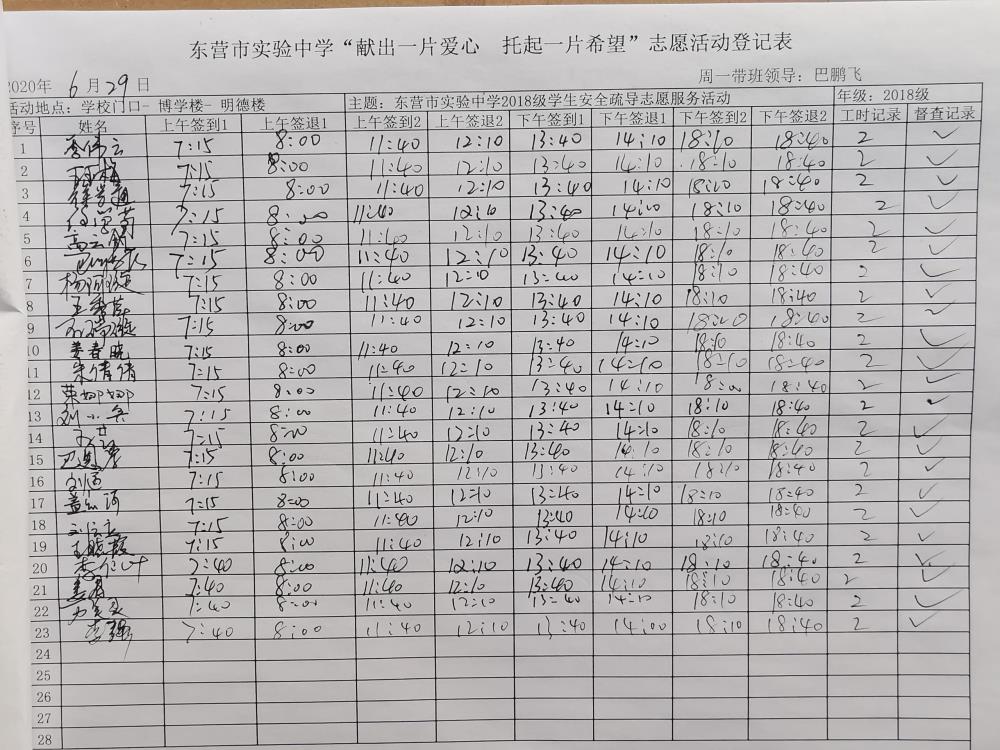 东营市实验中学“献出一片爱心 托起一片希望”志愿活动登记表
2020年 6 月 29 日 周一带班领导：巴鹏飞
活动地点：学校门口- 博学楼- 明德楼 主题：东营市实验中学2018级学生安全疏导志愿服务活动 年级：2018级
序号 姓名 上午签到1 上午签退1 上午签到2 上午签退2 下午签到1 下午签退1 下午签到2 下午签退2 工时记录 督查记录
1 7:15 8:00 11:40 12:10 13:40 14:10 18:10 18:40 2 ✓
2 7:15 8:00 11:40 12:10 13:40 14:10 18:10 18:40 2 ✓
3 7:15 8:00 11:40 12:10 13:40 14:10 18:10 18:40 2 ✓
4 7:15 8:00 11:40 12:10 13:40 14:00 18:10 18:40 2 ✓
5 7:15 8:00 11:40 12:10 13:40 14:10 18:10 18:40 2 ✓
6 7:15 8:00 11:40 12:10 13:40 14:10 18:10 18:40 2 ✓
7 7:15 8:00 11:40 12:10 13:40 14:10 18:10 18:40 2 ✓
8 7:15 8:00 11:40 12:10 13:40 14:10 18:10 18:40 2 ✓
9 7:15 8:00 11:40 12:10 13:40 14:10 18:40 2 ✓
10 姜春晓 7:15 8:00 11:40 12:10 13:40 14:10 18:10 18:40 2 ✓
11 朱倩倩 7:15 8:00 11:40 12:10 13:40 14:10 18:10 18:40 2 ✓
12 荣娜娜 7:15 8:00 11:40 12:10 13:40 14:10 18:00 18:40 2 ✓
13 刘小兵 7:15 8:00 11:40 12:10 13:40 14:10 18:10 18:40 2 ✓
14 7:15 8:00 11:40 12:10 13:40 14:10 18:10 18:40 2 ✓
15 7:15 8:00 11:40 12:10 13:40 14:10 18:10 18:40 2 ✓
16 7:15 8:00 11:40 12:10 13:40 14:10 18:10 18:40 2 ✓
17 7:15 8:00 11:40 12:10 13:40 14:10 18:10 18:40 2 ✓
18 7:15 8:00 11:40 12:10 13:40 14:10 18:10 18:40 2 ✓
19 王晓毅 7:15 8:00 11:40 12:10 13:40 14:10 18:10 18:40 2 ✓
20 7:40 8:00 11:40 12:10 13:40 14:10 18:10 18:40 2 ✓
21 7:40 8:00 11:40 12:10 13:40 14:10 18:10 18:40 2 ✓
22 7:40 8:00 11:40 12:10 13:40 14:10 18:10 18:40 2 ✓
23 李强 7:40 8:00 11:40 12:10 13:40 14:00 18:10 18:40 2 ✓
24
25
26
27
28